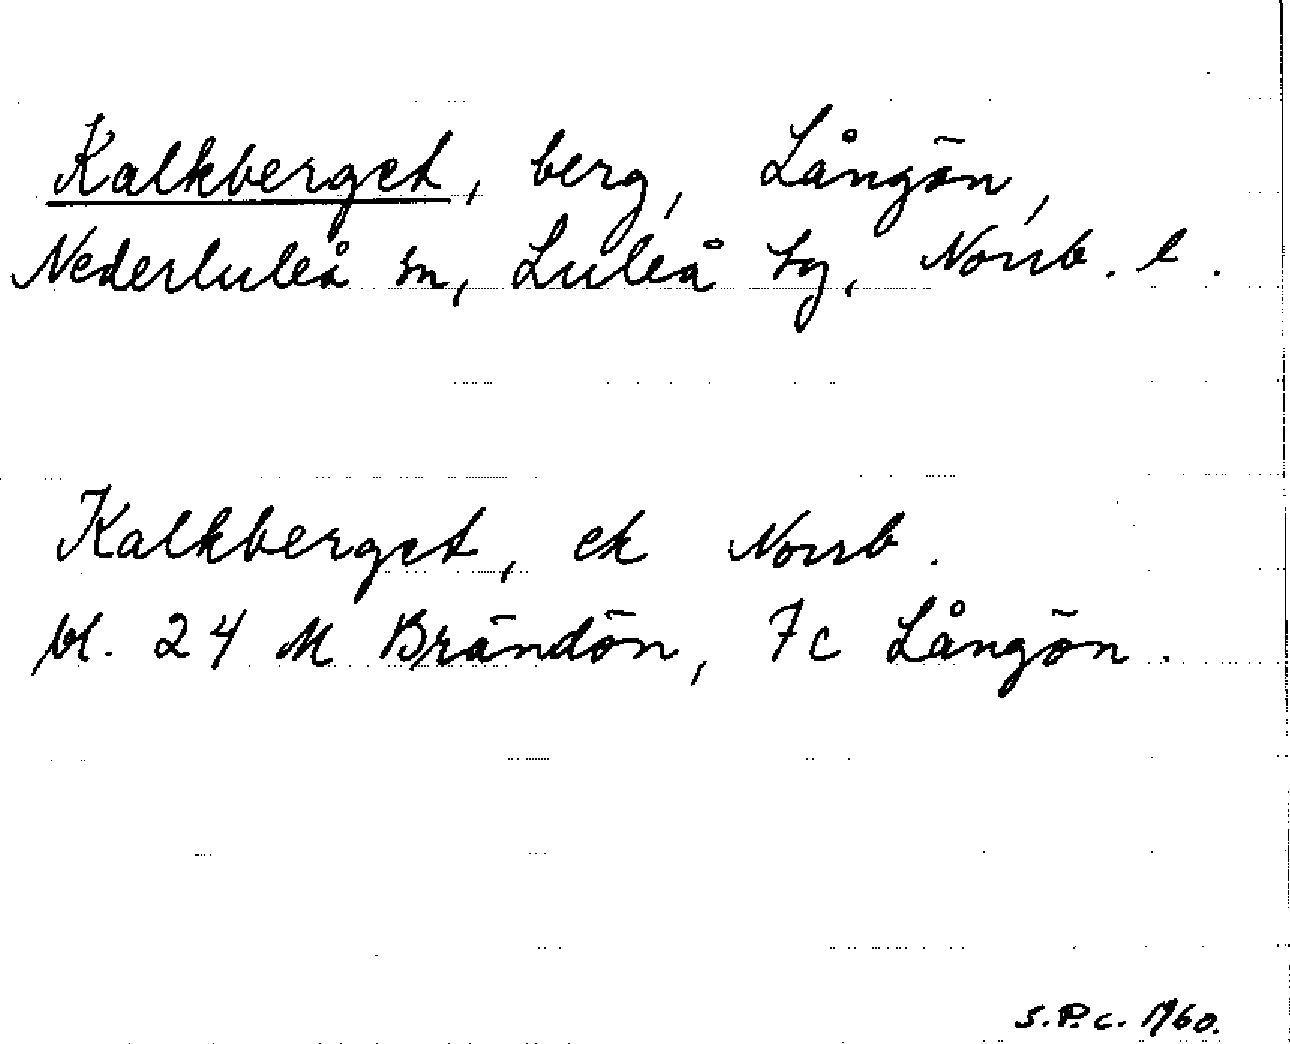 Kalkberget, berg, Långön,
Nederluleå sn, Luleå tg, Norrb. l.
Kalkberget, ek Norrb.
bl. 24 M Brändön, 7c Långön.
S.P.c. 1960.